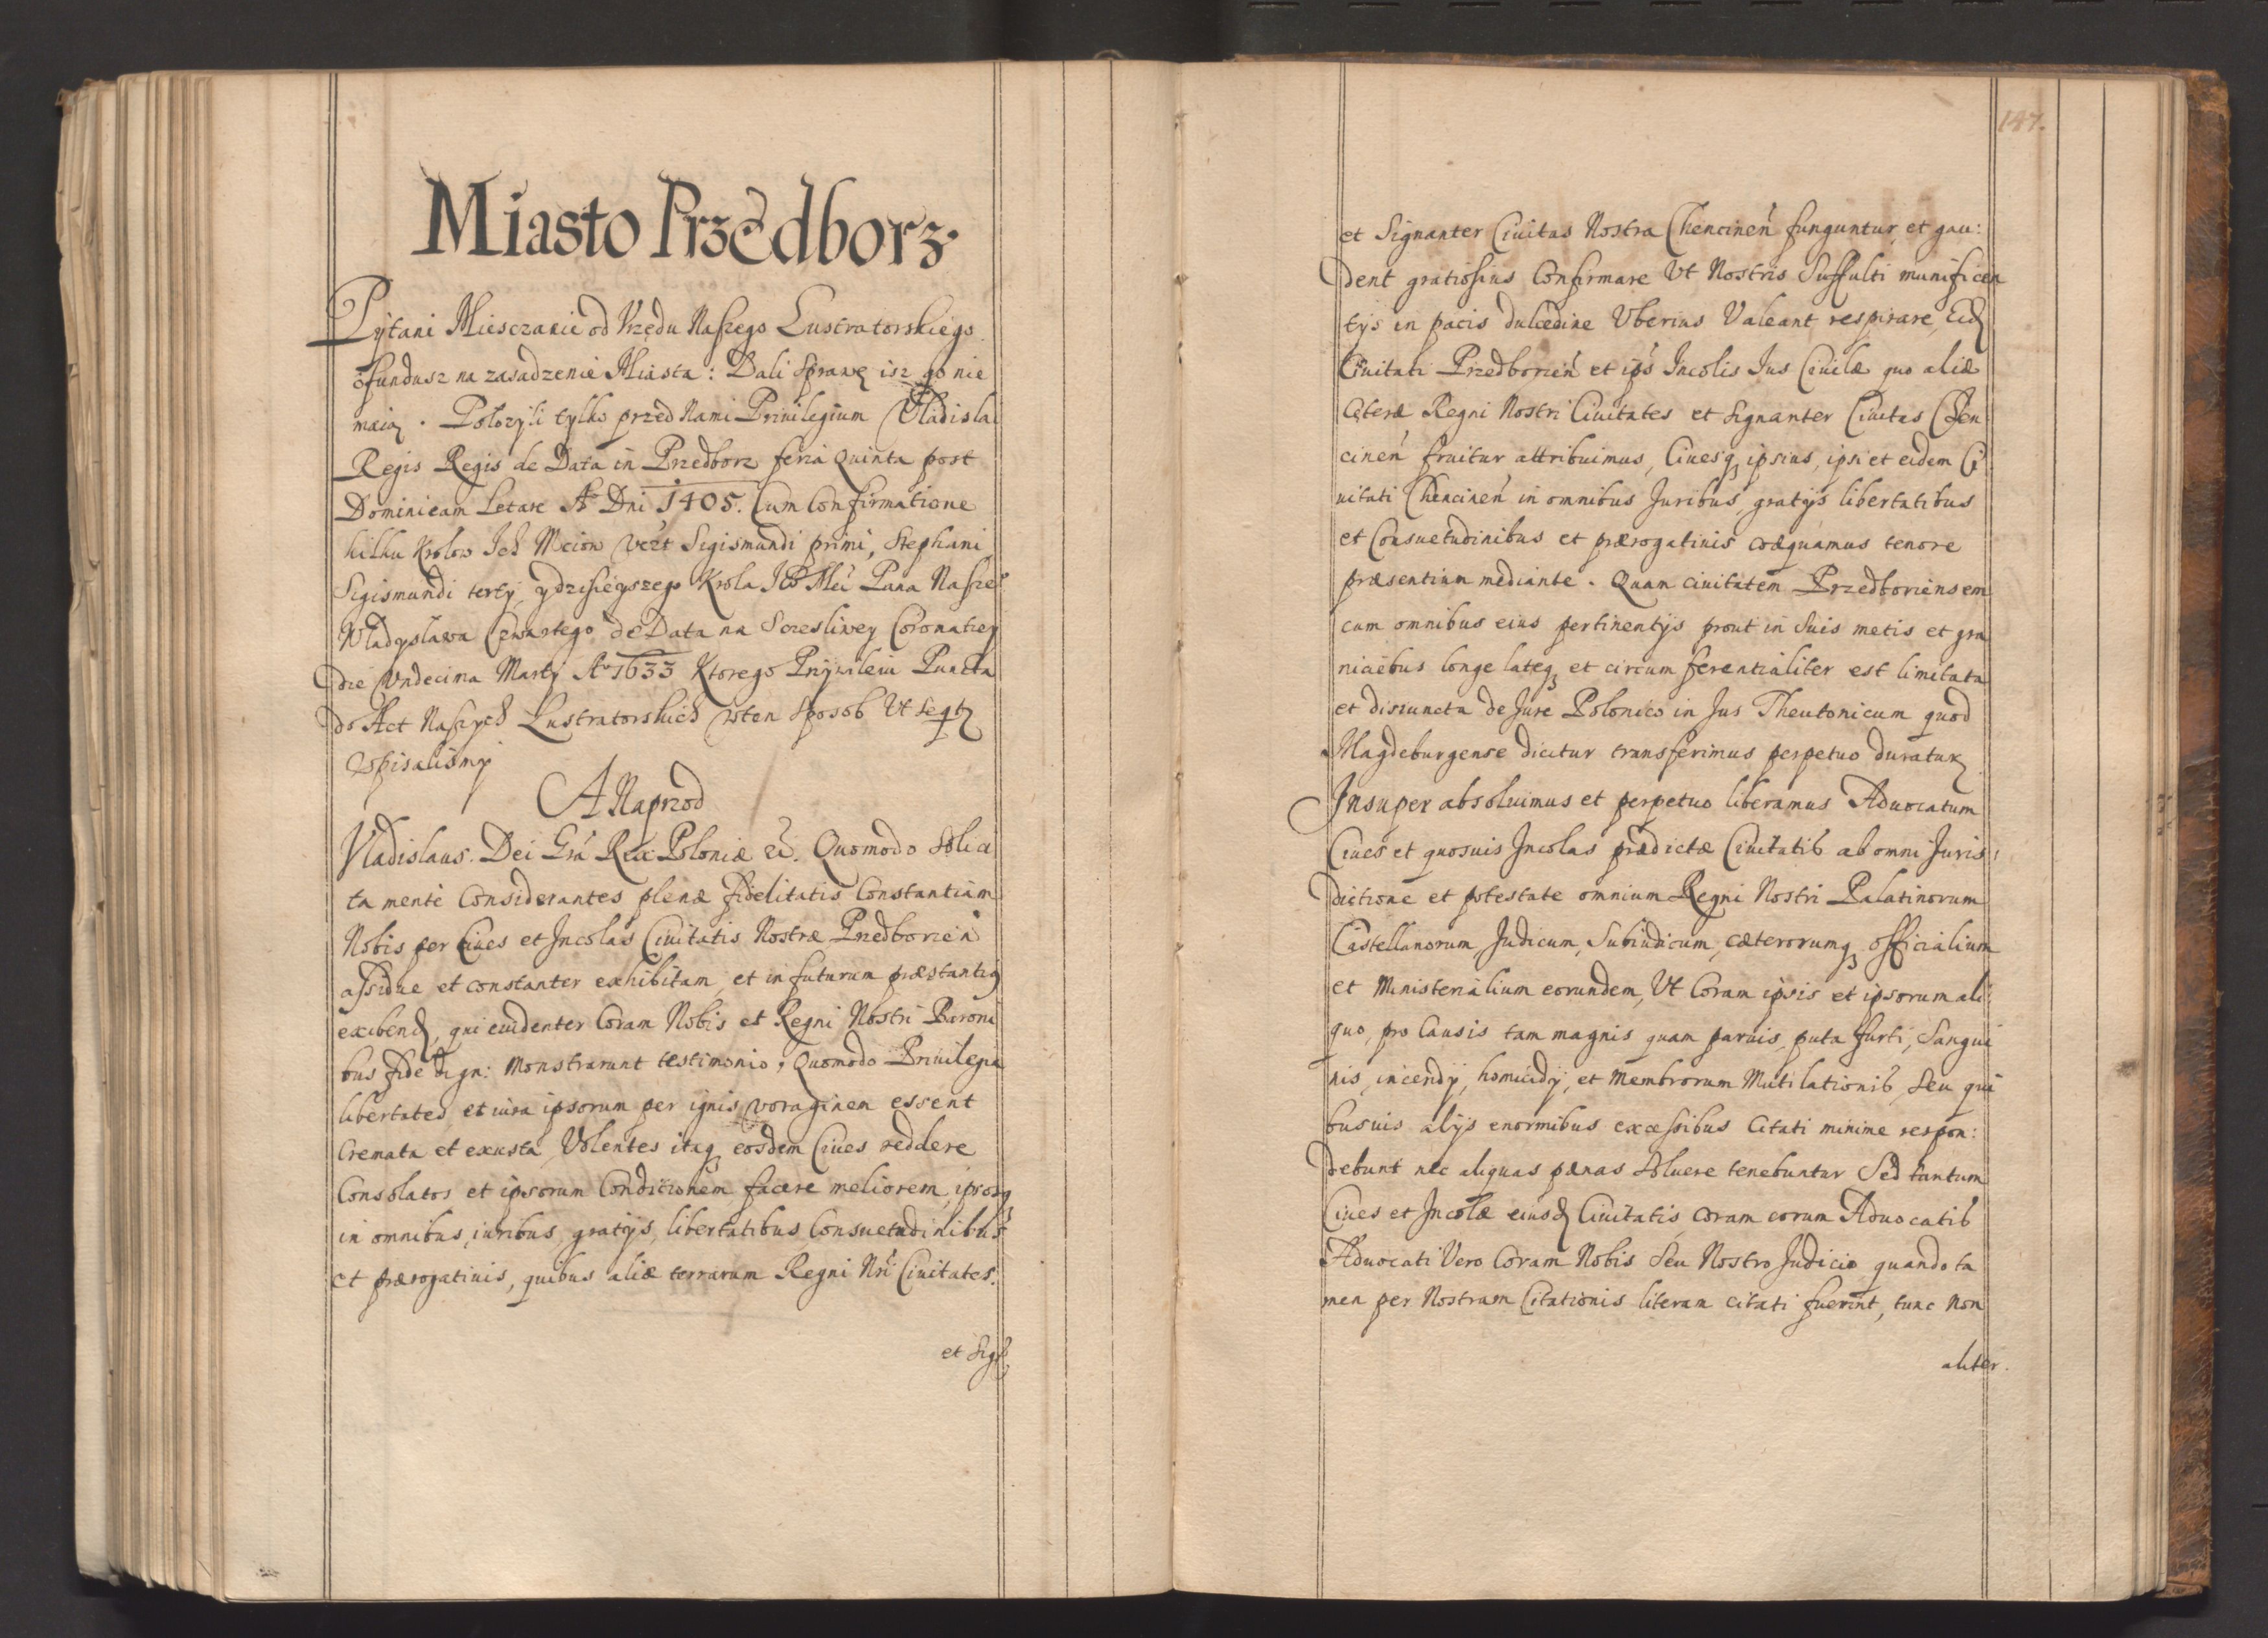 Miasto Przedborz.
Pytani Miesczanie od Vrzędu Naszego Lustratorskiego
o fundusz na zasadzenie Miasta: Dali Sprawę isz go nie
maią. Położyli tylko przed Nami Priuilegium Vladislai
Regis Regis de Data in Przedborz feria Quinta post
Dominicam Letare Ao Dni 1405. Cum Confirmatione
kilku Krolow Ich Mciow Vczt Sigismundi primi, Stephani
Sigismundi tertÿ, y dzisieyszego Krola Je Mci Pana Nasze
Władysława Czwartego de Data na Sczesliwey Coronatiey
die Vndecima Martÿ Ao 1633 Ktorego Przywileiu Puncta
do Act Naszych Lustratorskich wten Sposob Vt seqt
wpisalismy
A Naprzod
Vladislaus. Dei Gra Rex Poloniæ et. Quomodo Solici
ta mente Considerantes plenæ fidelitatis Constantiam
Nobis per Ciues et Incolas Ciuitatis Nostræ Przedborzen
assidue et constanter exhibitam, et in futurum præstantiq
exibend, qui euidenter Coram Nobis et Regni Nostri Baroni
bus fide dign: Monstrarunt testimonio, Quomodo Priuilegia
libertates et iura ipsorum per ignis voraginem essent
Cremata et exusta, Volentes itaq eosdem Ciues reddere
Consolatos et ipsorum Conditionem facere meliorem, ipsosq
in omnibus, iuribus, gratÿs, libertatibus Consuetudinibus
et prærogatiuis, quibus aliæ terrarum Regni Nri Ciuitates.
et Sig
147.
et Signanter Ciuitas Nostra Chencinen funguntur, et gau:
dent gratiosius Confirmare Vt Nostris Suffulti munificen
tÿs in pacis dulcedine Vberius Valeant respirare, Eid
Ciuitati Przedborzen et ips Incolis Jus Ciuile quo aliæ
Cęteræ Regni Nostri Ciuitates et Signanter Ciuitas Chen
cinen fruitur attribuimus, Ciuesq ipsius, ipsi et eidem Ci
uitati Chencinen in omnibus Juribus, gratÿs libertatibus
et Consuetudinibus et prærogatiuis coæquamus tenore
præsentium mediante. Quam ciuitatem Przedboriensem
cum omnibus eius pertinentÿs prout in Suis metis et gra
niciebus longe lateq, et circum ferentialiter est limitata
et disiuncta de Jure Polonico in Jus Theutonicum quod
Magdeburgense dicitur transferimus perpetuo duratur
Insuper absoluimus et perpetuo liberamus Aduocatum
Ciues et quosuis Incolas prædictæ Ciuitatis ab omni Juris:
dictione et potestate omnium Regni Nostri Palatinorum
Castellanorum, Judicum, Subiudicum, cæterorumq officialium
et Ministerialium eorundem, Vt Coram ipsis et ipsorum ali:
quo, pro Causis tam magnis quam paruis, puta furti, Sangui
nis, incendÿ, homicidÿ, et Membrorum Mutilationis, Seu qui
busuis alÿs enormibus excessibus Citati minime respon:
debunt nec aliquas pænas Soluere tenebuntur Sed tantum
Ciues et Incolæ eiusd Ciuitatis, coram eorum Aduocatis
Aduocati Vero Coram Nobis Seu Nostro Judicio quando ta
men per Nostram Citationis literam citati fuerint, tunc Non
aliter.